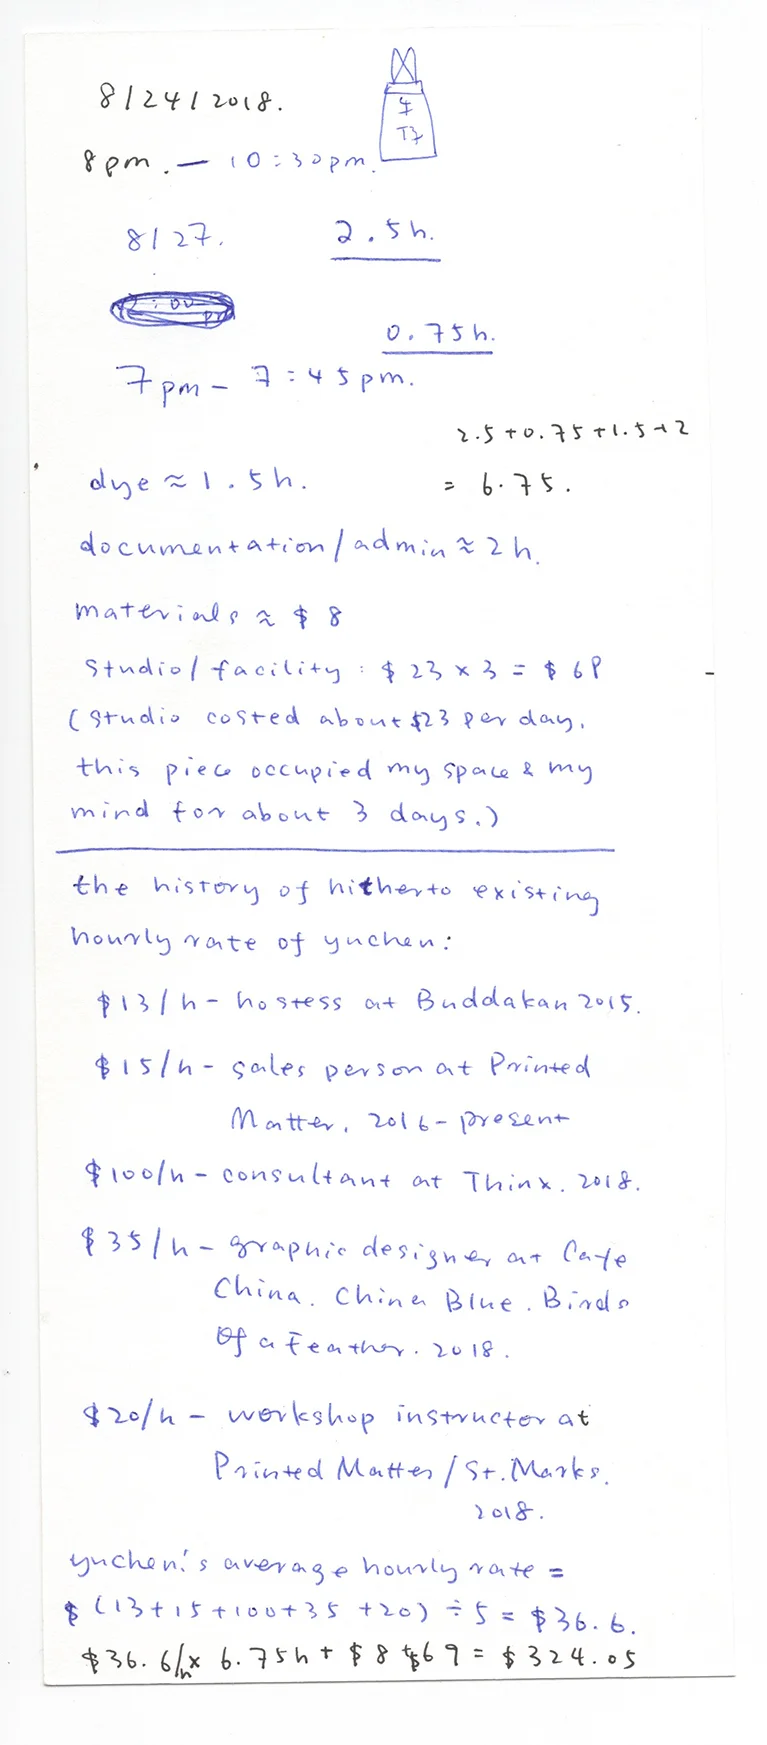 8/24/2018.
8pm. — 10:30pm.
8/27.
2.5h.
0.75h.
7pm – 7:45pm.
2.5+0.75+1.5+2
= 6.75.
dye ≈ 1.5h.
documentation/admin ≈ 2h.
materials ≈ $8
studio/facility: $23 × 3 = $69
(studio costed about $23 per day.
this piece occupied my space & my
mind for about 3 days.)
the history of hitherto existing
hourly rate of yuchen:
$13/h – hostess at Buddakan 2015.
$15/h – sales person at Printed
Matter. 2016 – present
$100/h – consultant at Thinx. 2018.
$35/h – graphic designer at Cafe
China. China Blue. Birds
Of a Feather. 2018.
$20/h – workshop instructor at
Printed Matter/St. Marks.
2018.
yuchen's average hourly rate =
$(13+15+100+35+20) ÷ 5 = $36.6.
$36.6/h × 6.75h + $8 + $69 = $324.05